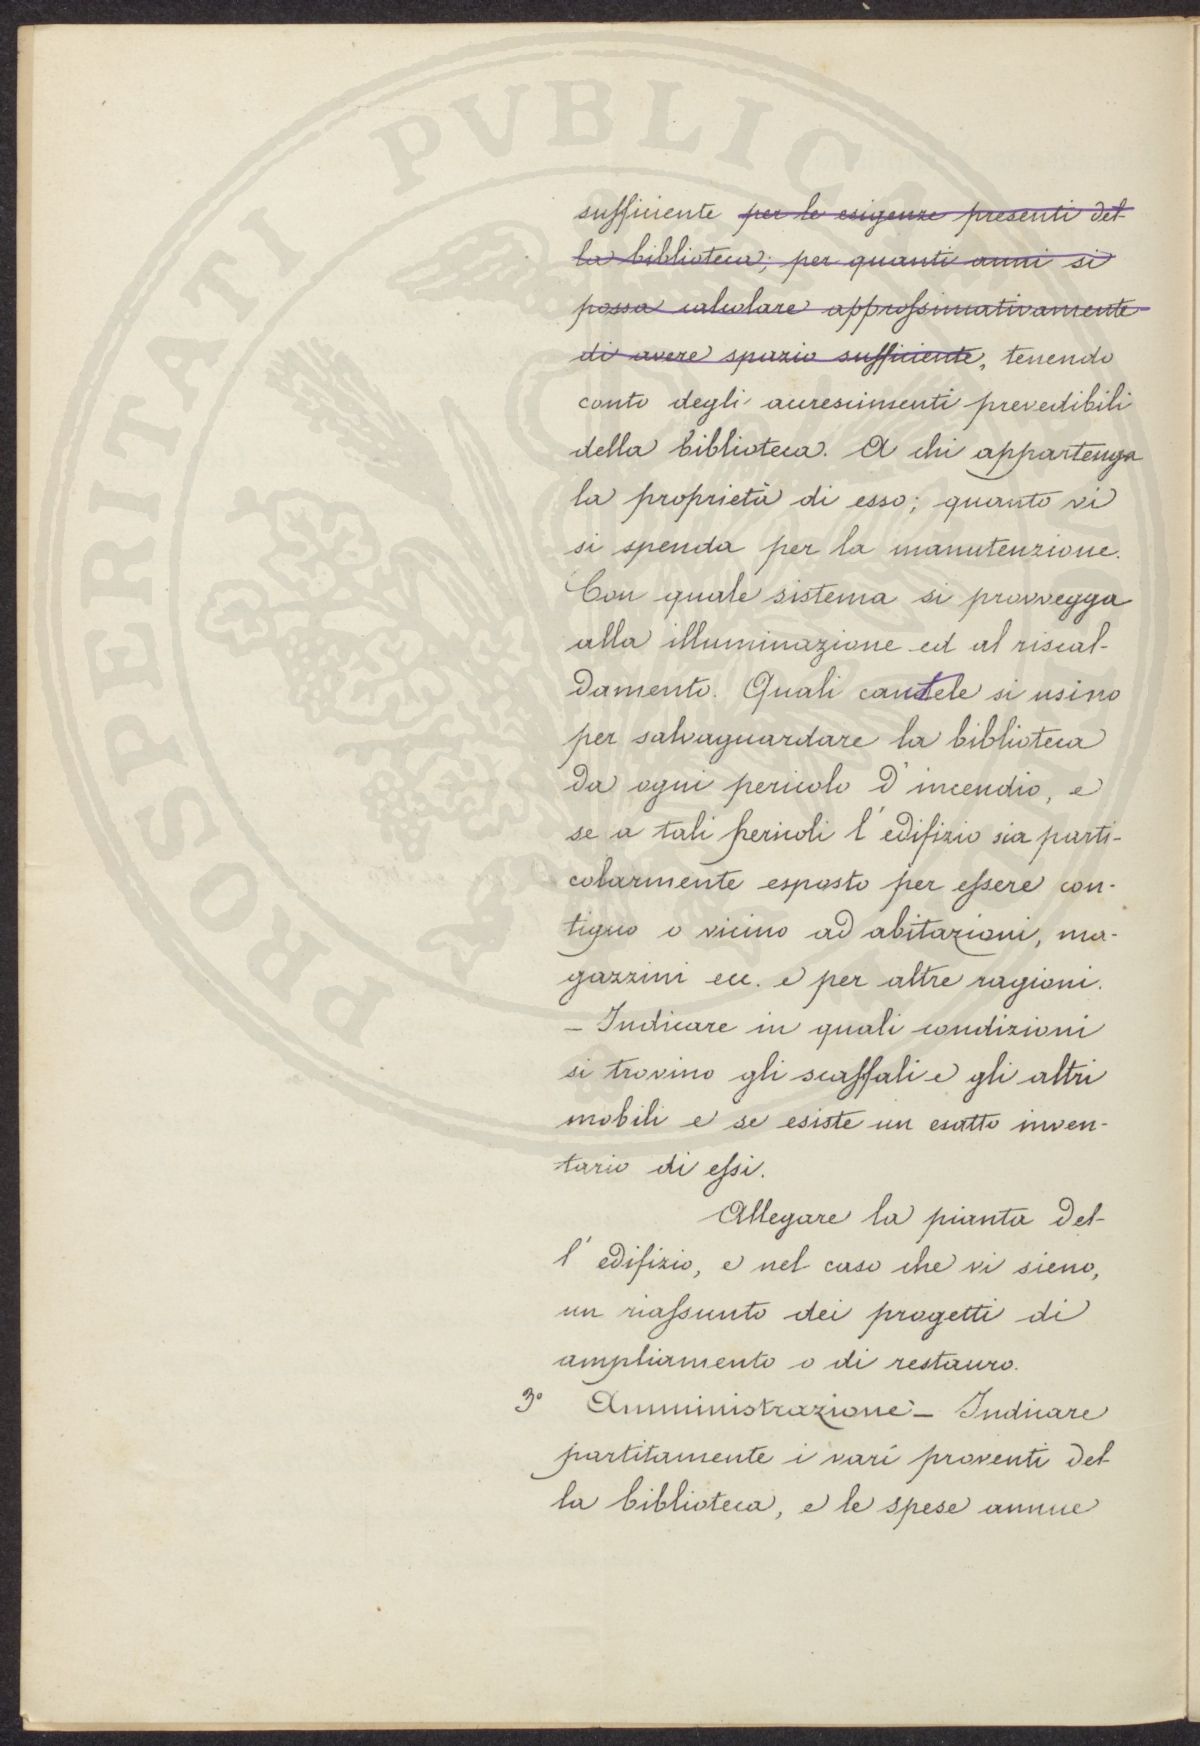 PROSPERITATI PVBLICAE
sufficiente per le esigenze presenti del-
la biblioteca; per quanti anni si
possa calcolare approssimativamente
di avere spazio sufficiente, tenendo
conto degli accrescimenti prevedibili
della biblioteca. A chi appartenga
la proprietà di esso; quanto vi
si spenda per la manutenzione.
Con quale sistema si provvegga
alla illuminazione ed al riscal-
damento. Quali cautele si usino
per salvaguardare la biblioteca
da ogni pericolo d'incendio, e
se a tali pericoli l'edifizio sia parti-
colarmente esposto per essere con-
tiguo o vicino ad abitazioni, ma-
gazzini ecc. e per altre ragioni.
– Indicare in quali condizioni
si trovino gli scaffali e gli altri
mobili e se esiste un esatto inven-
tario di essi.
Allegare la pianta del-
l'edifizio, e nel caso che vi sieno,
un riassunto dei progetti di
ampliamento o di restauro.
3° Amministrazione – Indicare
partitamente i vari proventi del-
la biblioteca, e le spese annue